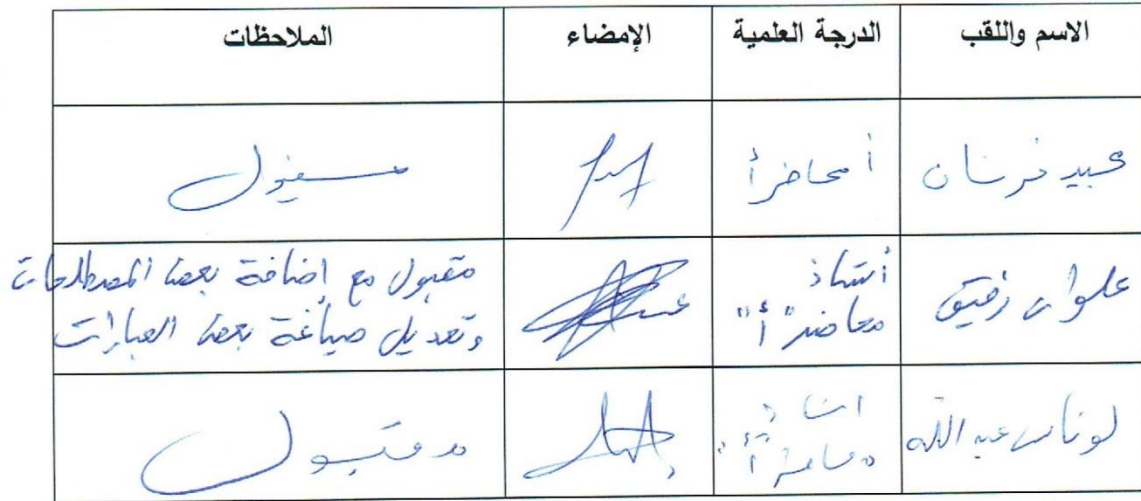 الاسم واللقب الدرجة العلمية الإمضاء الملاحظات
عبيد فرسان أ محاضر أ مقبول
علوان رفيق أستاذ محاضر "أ" مقبول مع إضافة بعض المصطلحات
وتعديل صياغة بعض العبارات
لوناس عبد الله استاذ محاضر "أ" مقبول